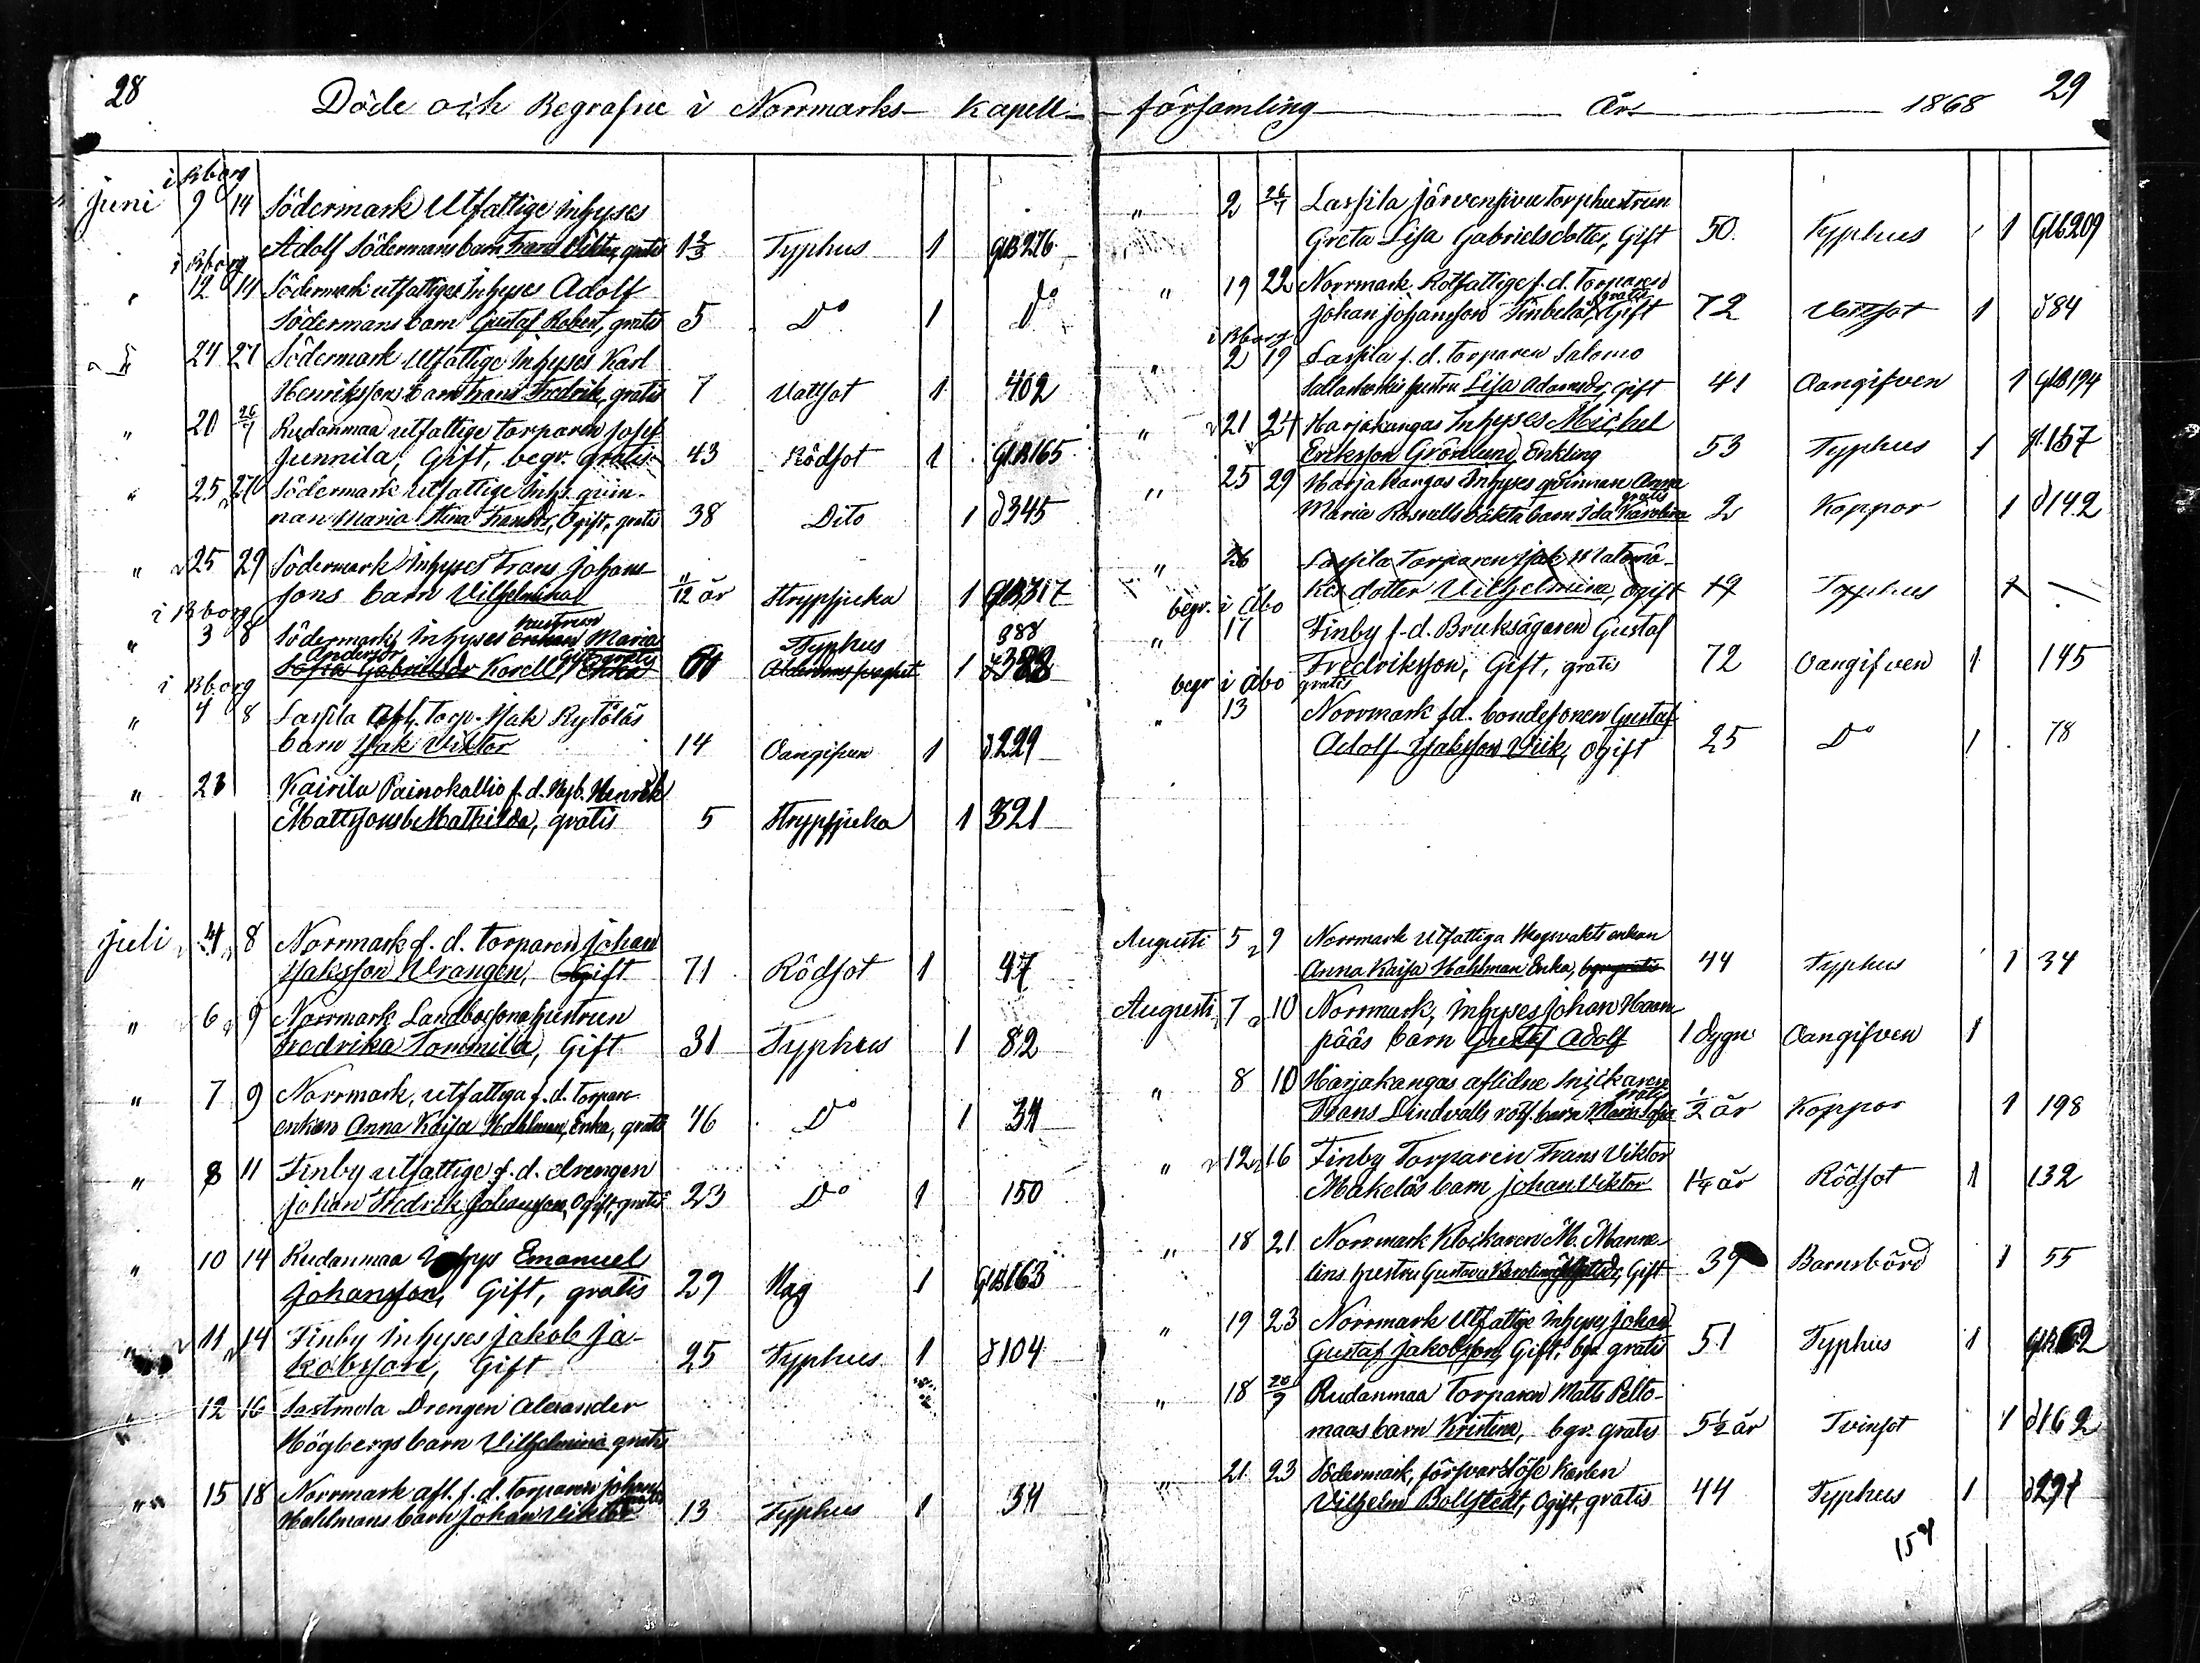 28
Döde och Begrafne i Norrmarks Kapell
i Bborg
Juni 9 14 Södermark Utfattige Inhyses
Adolf Södermans barn Frans Viktor, gratis 1 2/3 Typhus 1 GlB 276
i Bborg
" 12 14 Södermark utfattige Inhyses Adolf
Södermans barn Gustaf Robert, gratis 5 Do 1 do
24 27 Södermark Utfattige Inhyses Karl
Henriksson barn Frans Fredrik, gratis 7 Vattsot 1 402
" 20 26/7 Rudanmaa utfattige torparen Josef
Junnila, Gift, begr. gratis 43 Rödsot 1 GlB 165
" 25 27 Södermark utfattige Inhs. qvin-
nan Maria Stina Fransdr, Ogift, gratis 38 Dito 1 d 345
" 25 29 Södermark Inhyses Frans Johans-
sons barn Vilhelmina 11/12 år Strypsjuka 1 GlB 317
i Bborg
hustrun
" 3 8 Södermark, Inhyses Enkan Maria Typhus 388
Andersdr gratis
Sofia Gabrielsdr Korell Enka 1
i Bborg
" 4 8 Lassila torp. Isak Rytöläs
barn Isak Viktor 14 Oangifven 1 d 229
" 23 Kairila Painokallio f.d. Henrik
Mattssons b. Mathilda, gratis 5 Strypsjuka 1 321
Juli 4 8 Norrmark f.d. torparen Johan
Isaksson Vrangen, Gift 71 Rödsot 1 47
" 6 9 Norrmark Landbossonahustrun
Fredrika Tommila, Gift 31 Typhus 1 82
" 7 9 Norrmark, utfattiga f.d. torpare-
enkan Anna Kaisa Hahlman, Enka, gratis 46 Do 1 34
" 8 11 Finby utfattige f.d. drengen
Johan Fredrik Johansson, Ogift, gratis 23 Do 1 150
" 10 14 Rudanmaa Inhys Emanuel
Johansson, Gift, gratis 29 Hag 1 GlB 163
" 11 14 Finby Inhyses Jakob Ja-
kobsson, Gift 25 Typhus 1 d 104
" 12 16 Sastmola Drengen Alexander
Högbergs barn Vilhelmina gratis
" 15 18 Norrmark afl. f.d. torparen Johan
Hahlmans barn Johan Viktor gratis 13 Typhus 1 34
29
församling År 1868
" 2 26/7 Lassila Järvensivu torphustrun
Greta Lisa Gabrielsdotter, Gift 50. Typhus 1 GlB 209
" 19 22 Norrmark Rotfattige f.d. torparen
gratis
Johan Johansson Finbelas, Gift 72 Vattsot 1 d 84
i Bborg
" 2 19 Lassila f.d. torparen Salomo
hustru Lisa Adamsdr, Gift 41 Oangifven 1 GlB 194
" 21 24 Harjakangas Inhyses Michel
Eriksson Grönlund, Enkling 53 Typhus 1 d. 157
" 25 29 Harjakangas Inhyses qvinnan Anna
gratis
Maria Rosvalls oäkta barn Ida Karolina 2 Koppor 1 d 142
" 26 Lassila torparen Isak
dotter Vilhelmina, ogift 19 Typhus 1 —
begr. i Åbo
" 17 Finby f.d. Bruksägaren Gustaf
Fredriksson, Gift, gratis 72 Oangifven 1 145
begr i Åbo gratis
" 13 Norrmark f.d. bondesonen Gustaf
Adolf Isaksson Viik, Ogift 25 Do 1 78
Augusti 5 9 Norrmark utfattiga Skogsvakts enkan
Anna Kaisa Hahlman Enka, 44 Typhus 1 34
Augusti 7 10 Norrmark, inhyses Johan Haan-
pääs barn Gustaf Adolf 1 dygn Oangifven 1
" 8 10 Harjakangas aflidne Snickaren
gratis
Frans Lindvalls rotf. barn Maria Sofia 1/2 år Koppor 1 198
" 12 16 Finby Torparen Frans Viktor
Mäkeläs barn Johan Viktor 1 1/4 år Rödsot 1 132
" 18 21 Norrmark Klockaren M. Manne-
lins hustru Gustava Karolina Gift 39 Barnsbörd 1 55
" 19 23 Norrmark Utfattige Inhyses Johan
Gustaf Jakobsson, Gift, bgr. gratis 51 Typhus 1
" 18 20/9 Rudanmaa Torparen Matts Pelto-
maas barn Kristina, bgr. gratis 5 1/2 år Tvinsot 1 d 162
" 21 23 Södermark, försvarslöse karlen
Vilhelm Bollstedt, Ogift, gratis 44 Typhus 1 d 297
154